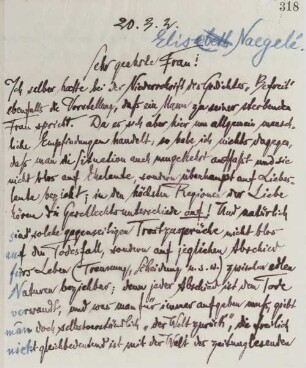 318
20. 3. 2.
Elisabeth Naegelé.
Sehr geehrte Frau!
Ich selber hatte bei der Niederschrift des Gedichtes „Befreit"
ebenfalls die Vorstellung, daß ein Mann zu seiner sterbenden
Frau spricht. Da es sich aber hier um allgemein mensch-
liche Empfindungen handelt, so habe ich nichts dagegen,
daß man die Situation auch umgekehrt auffaßt und sie
nicht blos auf Eheleute, sondern überhaupt auf Liebes-
leute bezieht; in den höchsten Regionen der Liebe
hören die Geschlechtsunterschiede auf! Und natürlich
sind solche gegenseitigen Trostzusprüche nicht blos
auf den Todesfall, sondern auf jeglichen Abschied
fürs Leben (Trennung, Scheidung u.s.w.) zwischen edlen
Naturen beziehbar; denn jeder Abschied ist dem Tode
verwandt, und was man für immer aufgeben muß, giebt
man doch selbstverständlich „der Welt zurück", die freilich
nicht gleichbedeutend ist mit der Welt der zeitunglesenden